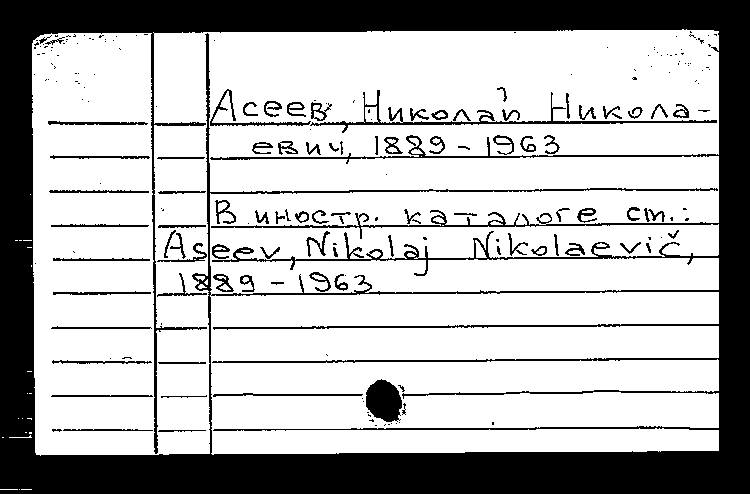 Асеев, Николай Никола-
евич, 1889 - 1963
В иностр. каталоге см.:
Aseev, Nikolaj Nikolaevič,
1889 - 1963